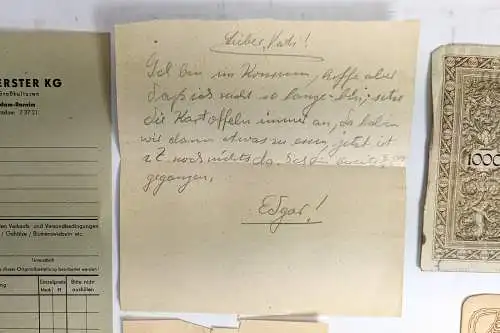 ERSTER KG
Großkulturen
dam-Bornim
Potsdam 7 37 21
Verkaufs- und Versandbedingungen
/ Gehölze / Blumenzwiebeln etc.
Unterschrift
Originalbestellung bearbeitet werden!
Einzelpreis
Mark Pf
Bitte nicht
ausfüllen
Lieber Vati!
Ich bin im Konsum, hoffe aber
daß ich nicht so lange
die Kartoffeln immer an, da haben
wir dann etwas zu essen, jetzt ist
z.Z. noch nichts da. Ich bin
gegangen.
Edgar!
1000